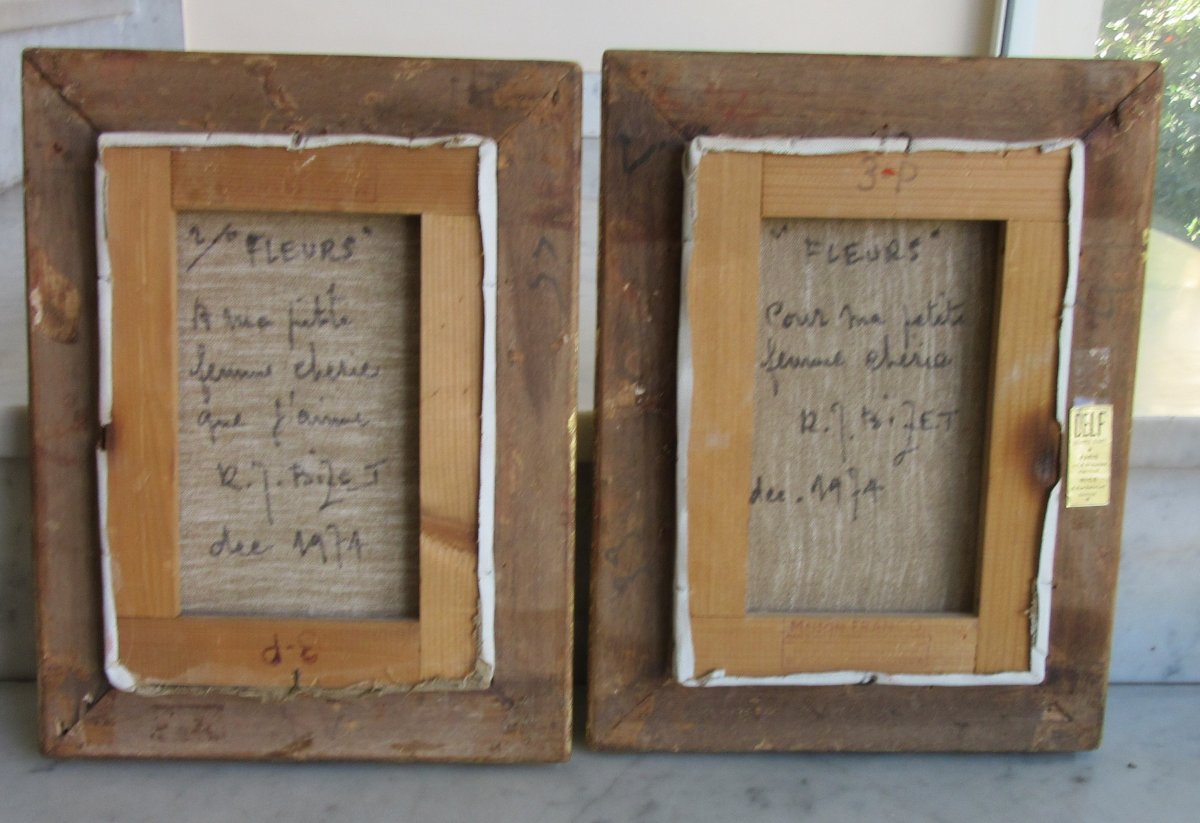 "FLEURS"
A ma petite
femme cherie
que j'aime
R.J. BIZET
dec 1974
3-P
3-P
"FLEURS"
Pour ma petite
femme cherie
R.J. BIZET
dec. 1974
MAISON FRANÇOIS
DELF